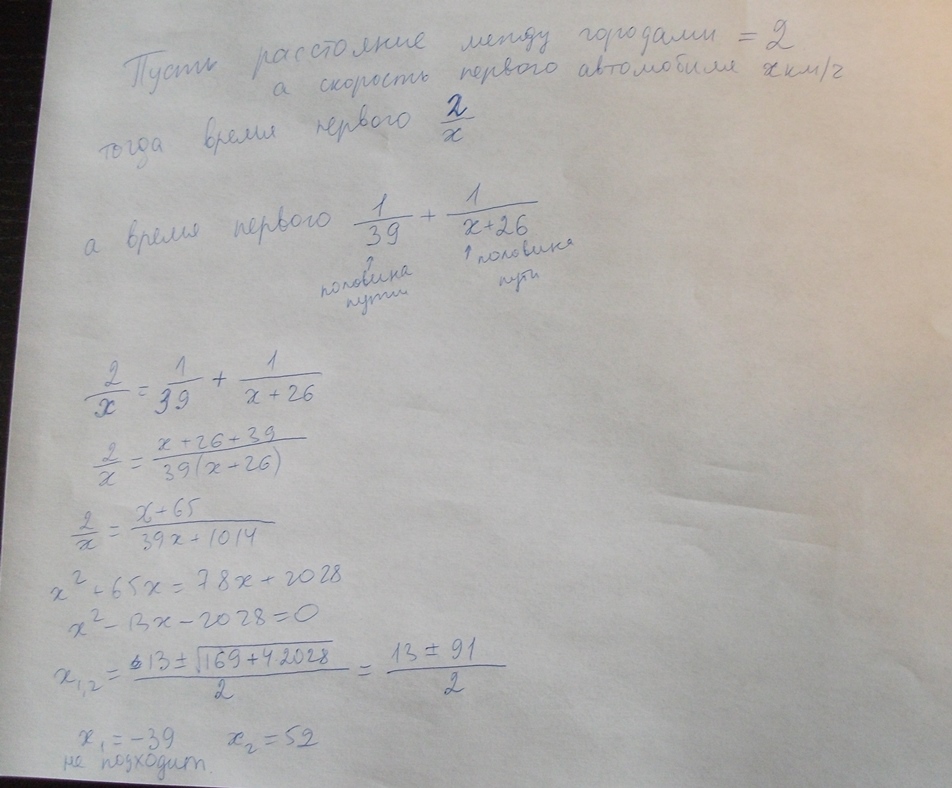 Пусть расстояние между городами = 2
а скорость первого автомобиля x км/ч
тогда время первого 2/x
а время первого 1/39 + 1/(x+26)
↑ половина пути ↑ половина пути
2/x = 1/39 + 1/(x+26)
2/x = (x+26+39)/(39(x+26))
2/x = (x+65)/(39x+1014)
x² + 65x = 78x + 2028
x² - 13x - 2028 = 0
x₁,₂ = (13 ± √(169+4·2028))/2 = (13 ± 91)/2
x₁ = -39 x₂ = 52
не подходит.